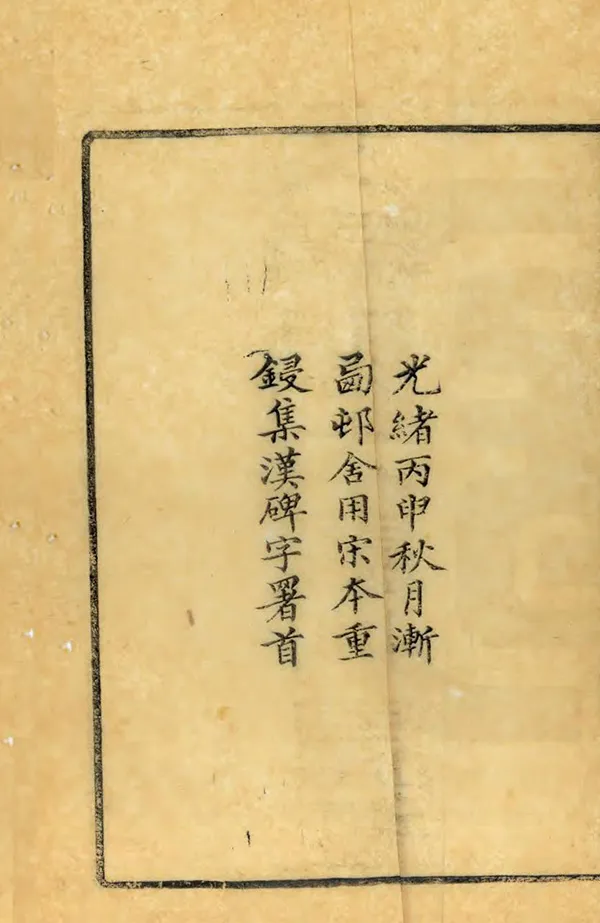 光緒丙申秋月漸
西邨舍用宋本重
鋟集漢碑字署首